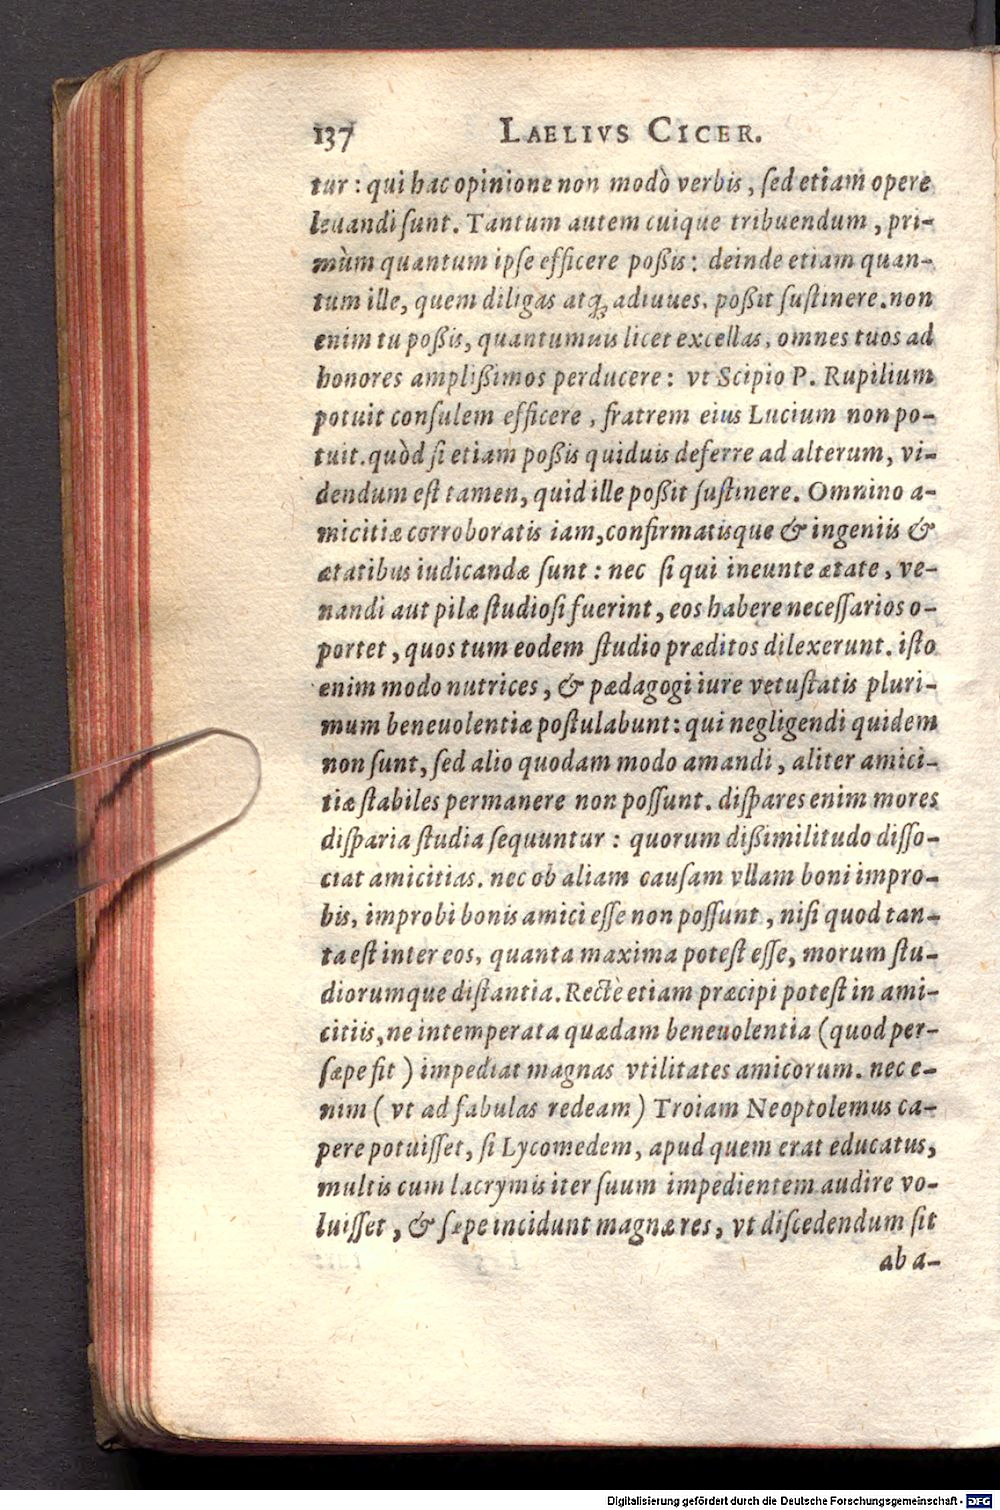 137 LAELIVS CICER.
tur: qui hac opinione non modò verbis, ſed etiam opere
leuandi ſunt. Tantum autem cuique tribuendum, pri-
mùm quantum ipſe efficere poßis: deinde etiam quan-
tum ille, quem diligas atq; adiuues, poßit ſuſtinere. non
enim tu poßis, quantumuis licet excellas, omnes tuos ad
honores amplißimos perducere: vt Scipio P. Rupilium
potuit conſulem efficere, fratrem eius Lucium non po-
tuit. quòd ſi etiam poßis quiduis deferre ad alterum, vi-
dendum eſt tamen, quid ille poßit ſuſtinere. Omnino a-
micitiæ corroboratis iam, confirmatisque & ingeniis &
ætatibus iudicandæ ſunt: nec ſi qui ineunte ætate, ve-
nandi aut pilæ ſtudioſi fuerint, eos habere neceſſarios o-
portet, quos tum eodem ſtudio præditos dilexerunt. iſto
enim modo nutrices, & pædagogi iure vetuſtatis pluri-
mum beneuolentiæ poſtulabunt: qui negligendi quidem
non ſunt, ſed alio quodam modo amandi, aliter amici-
tiæ ſtabiles permanere non poſſunt. diſpares enim mores
diſparia ſtudia ſequuntur: quorum dißimilitudo diſſo-
ciat amicitias. nec ob aliam cauſam vllam boni impro-
bis, improbi bonis amici eſſe non poſſunt, niſi quod tan-
ta eſt inter eos, quanta maxima poteſt eſſe, morum ſtu-
diorumque diſtantia. Rectè etiam præcipi poteſt in ami-
citiis, ne intemperata quædam beneuolentia (quod per-
ſæpe fit) impediat magnas vtilitates amicorum. nec e-
nim (vt ad fabulas redeam) Troiam Neoptolemus ca-
pere potuiſſet, ſi Lycomedem, apud quem erat educatus,
multis cum lacrymis iter ſuum impedientem audire vo-
luiſſet, & ſæpe incidunt magnæ res, vt diſcedendum ſit
ab a-
Digitalisierung gefördert durch die Deutsche Forschungsgemeinschaft - DFG